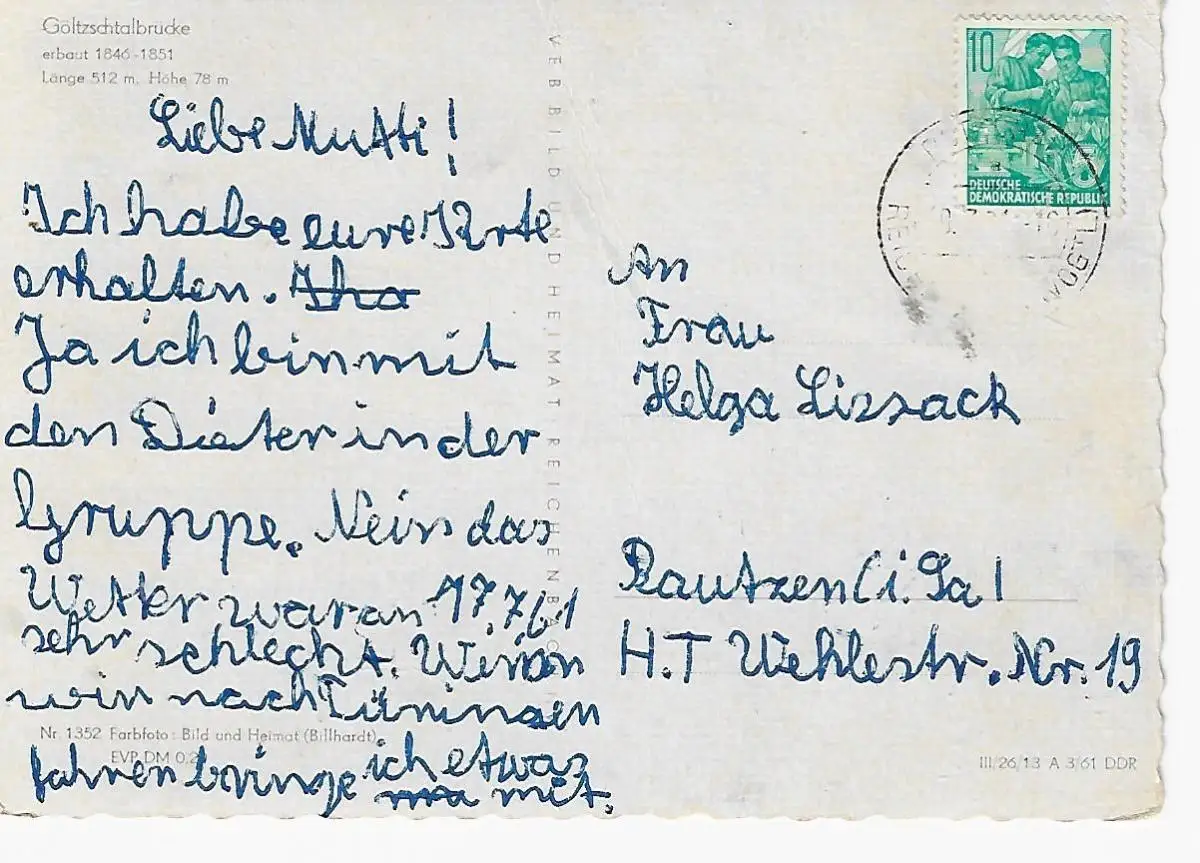 Göltzschtalbrücke
erbaut 1846-1851
Länge 512 m, Höhe 78 m
Liebe Mutti!
Ich habe eure Krte
erhalten. Iha
Ja ich bin mit
den Dieter in der
Gruppe. Nein das
Wetter war an 17.7/61
sehr schlecht. Wenn
wir nach Tüningen
fahren bringe ich etwas
mit.
Nr. 1352 Farbfoto: Bild und Heimat (Billhardt)
EVP DM 0,2
VEB BILD UND HEIMAT REICHENBACH
10
DEUTSCHE
DEMOKRATISCHE REPUBLIK
An
Frau
Helga Lissack
Bautzen (i. Sa)
H.T Wehlestr. Nr. 19
III/26/13 A 3/61 DDR